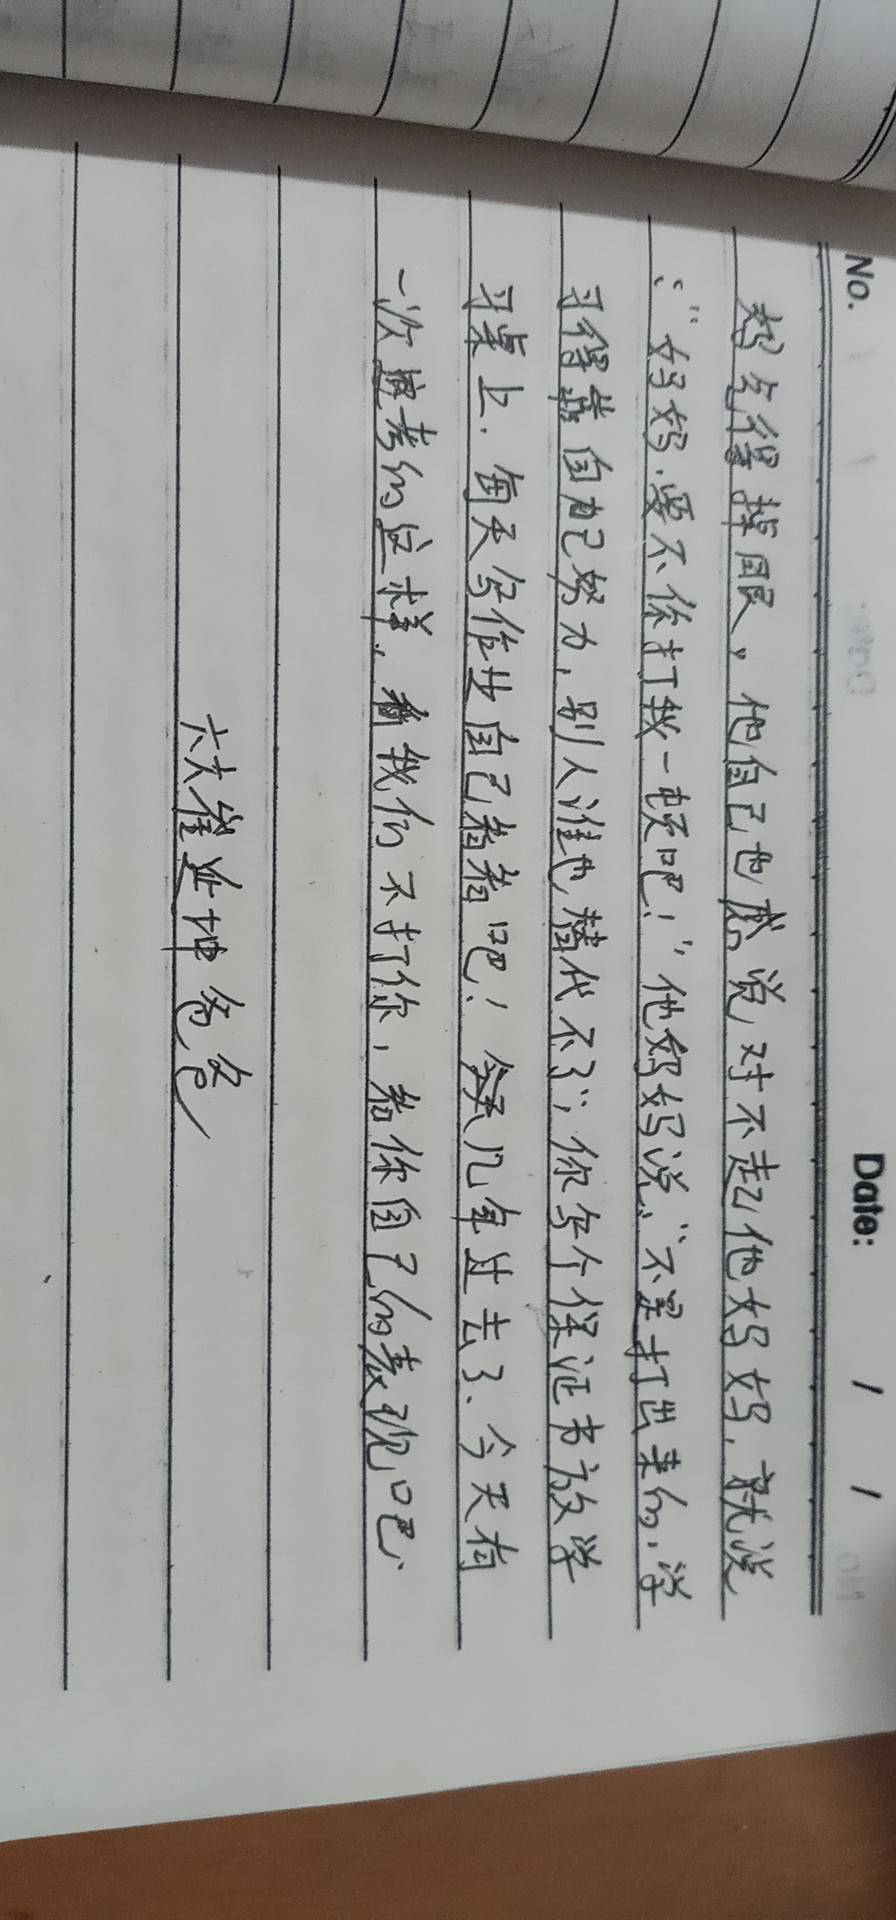 No. Date: / /
妈气得掉眼,他自己也感觉对不起他妈妈,就说
:“妈妈,要不你打我一顿吧!”他妈妈说:“不是打出来的,学
习得靠自己努力,别人谁也替代不了”,你写个保证书放学
习桌上,每天写作业自己看看吧!几年过去了、今天有
一次考的这样,看我们不打你,看你自己的表现吧、
六 爸爸